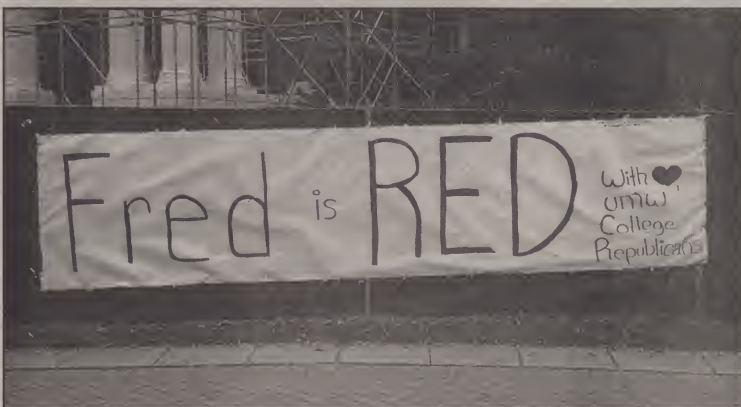 Fred is RED
With ♥
UMW
College
Republicans